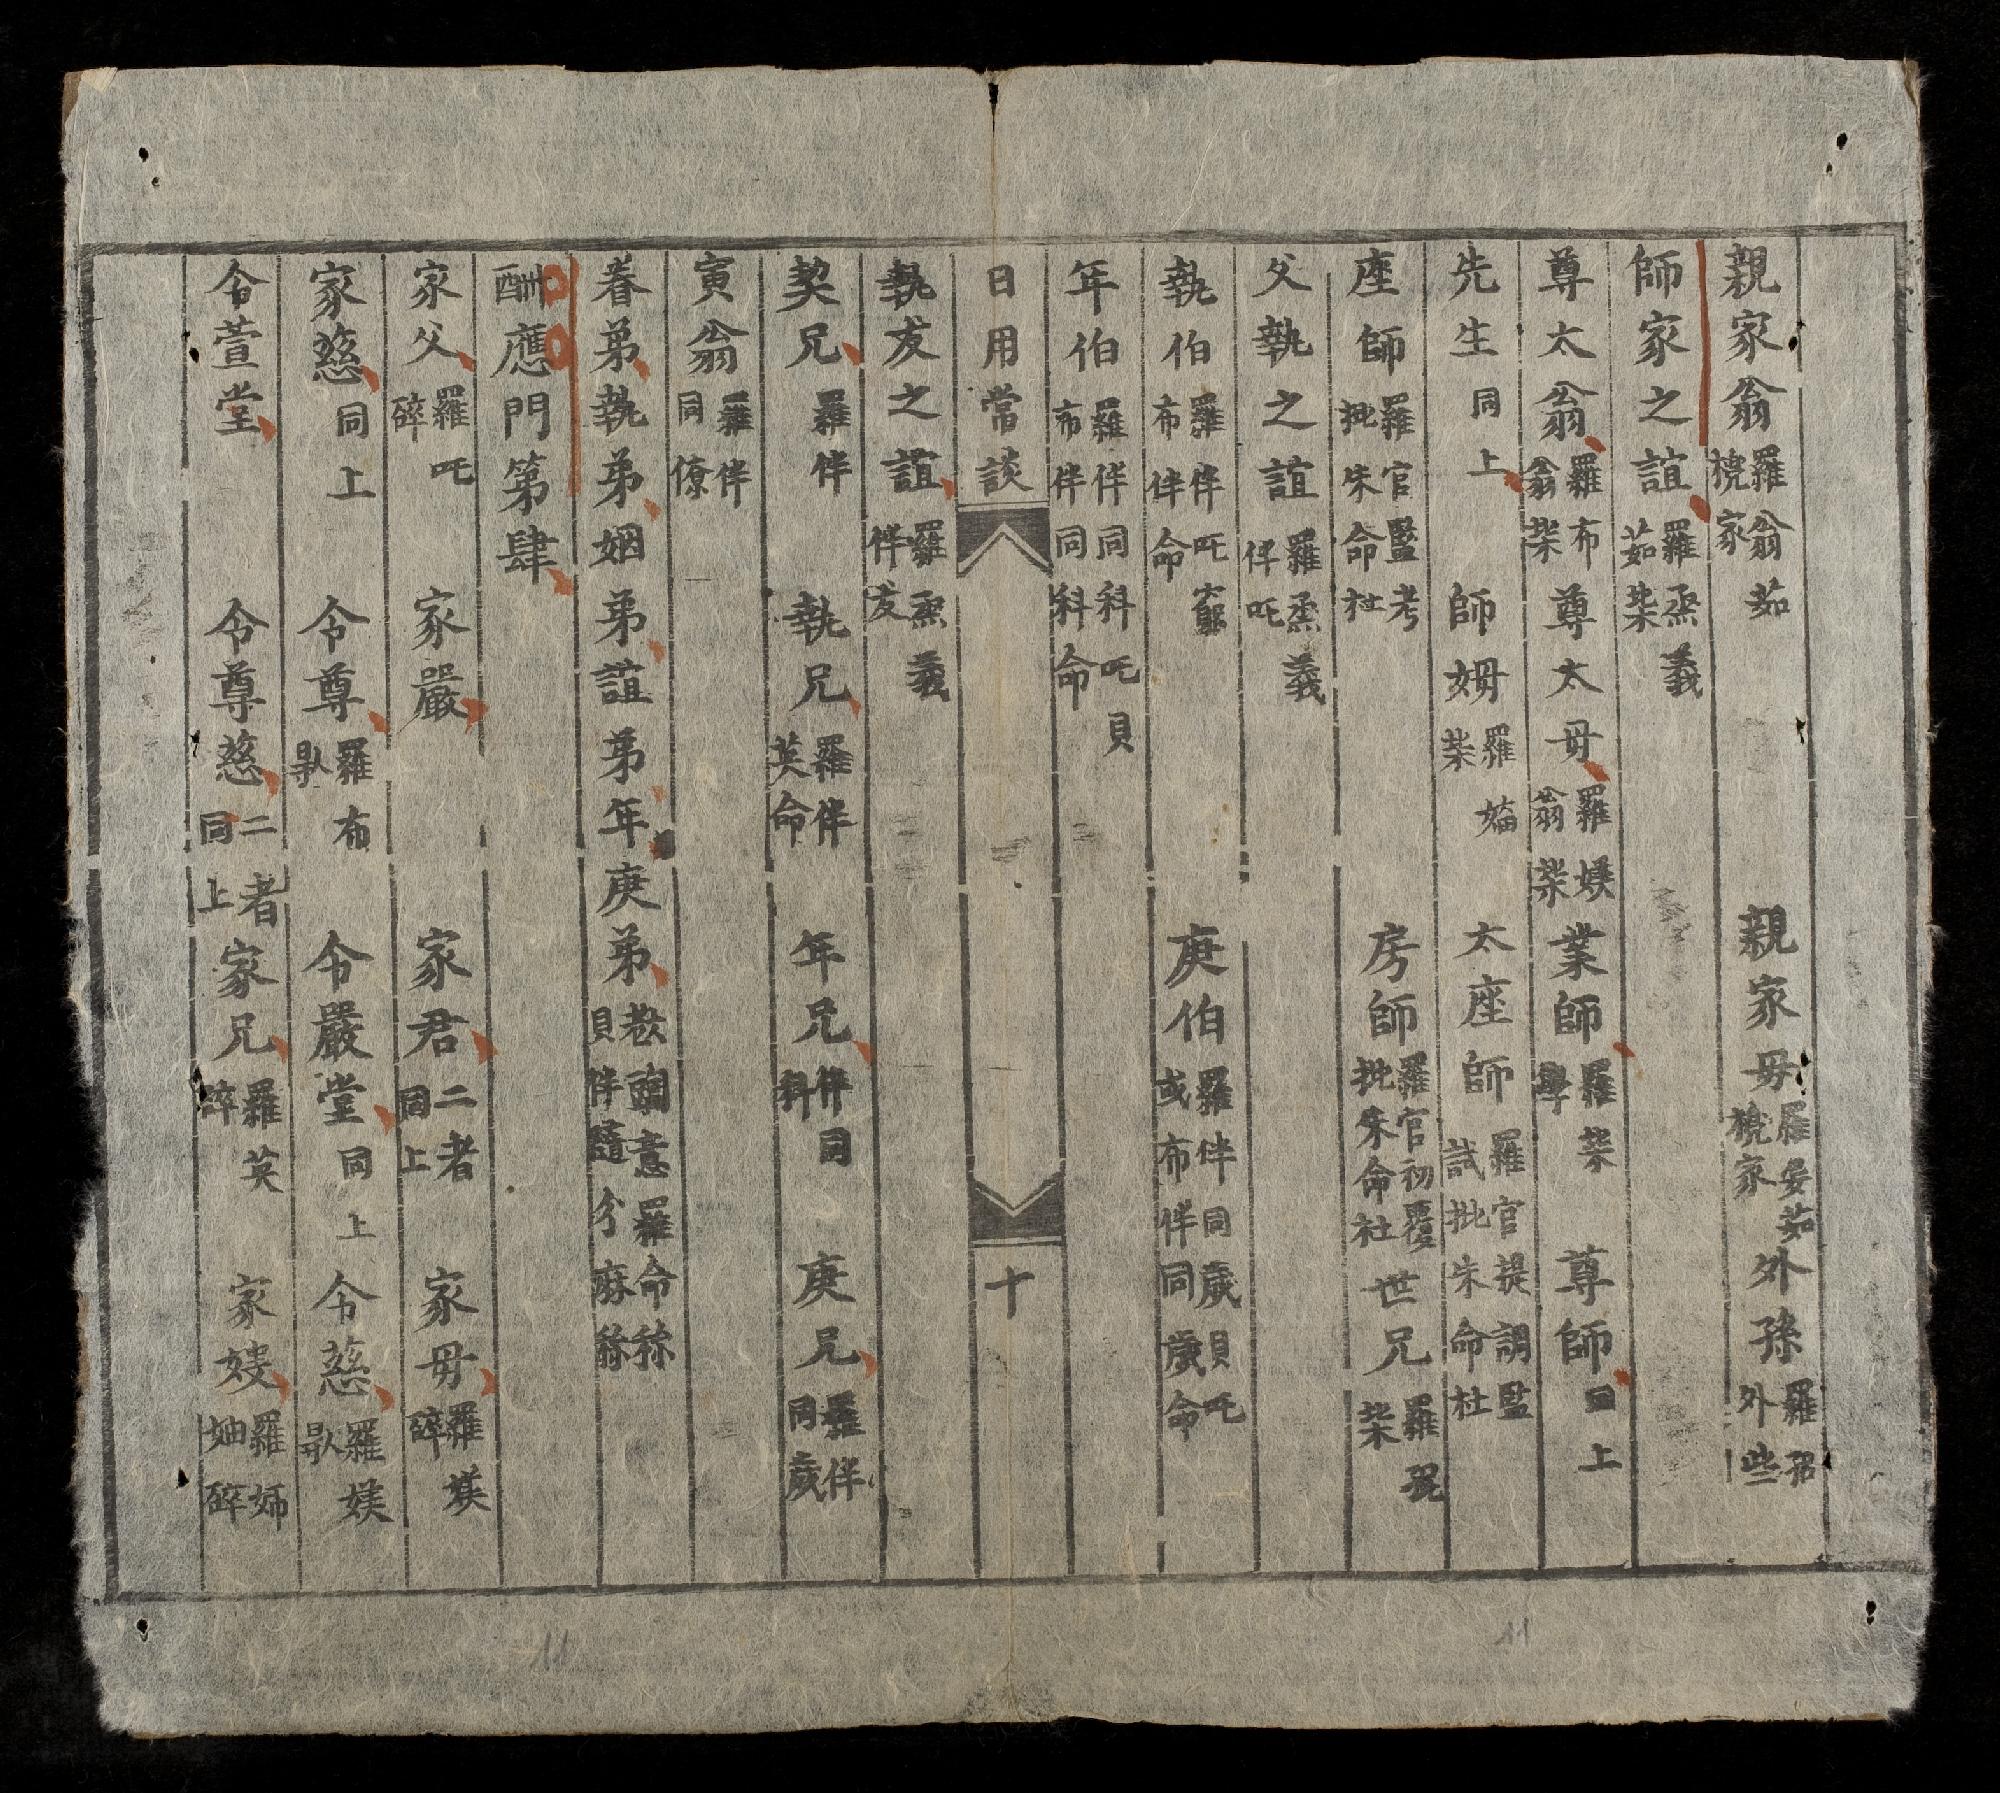 親家翁 羅翁茹家 親家毋 羅妾茹家 外孫 羅外些
師家之誼 羅烝義茹柴
尊太翁 羅布翁柴 尊太毋 羅媄翁柴 業師 羅柴學 尊師 同上
先生 同上 師姆 羅柴 太座師 羅官提調監試批朱命社
座師 羅官監考批朱命社 房師 羅官初覆批朱命社 世兄 羅柴
父執之誼 羅烝義伴吒
執伯 羅伴吒布伴命 庚伯 羅伴同歲貝吒或布伴同歲命
年伯 羅伴同科吒貝布伴同科命
日用常談 十
執友之誼 羅烝義伴友
契兄 羅伴 執兄 羅伴英命 年兄 伴同科 庚兄 羅伴同歲
寅翁 羅伴同僚
眷弟執弟姻弟誼弟年庚弟 意羅命称貝伴隨分麻称
酬應門第肆
家父 羅吒碎 家嚴 家君 二者同上 家毋 羅媄碎
家慈 同上 令尊 羅布 令嚴堂 同上 令慈 羅媄
令萱堂 令尊慈 二者同上 家兄 羅英碎 家嫂 羅姉妯碎